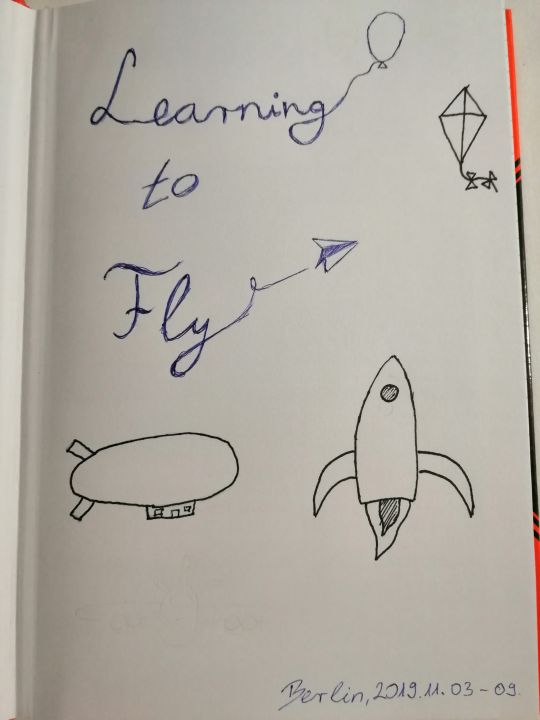 Learning
to
Fly
Berlin, 2019.11.03-09.